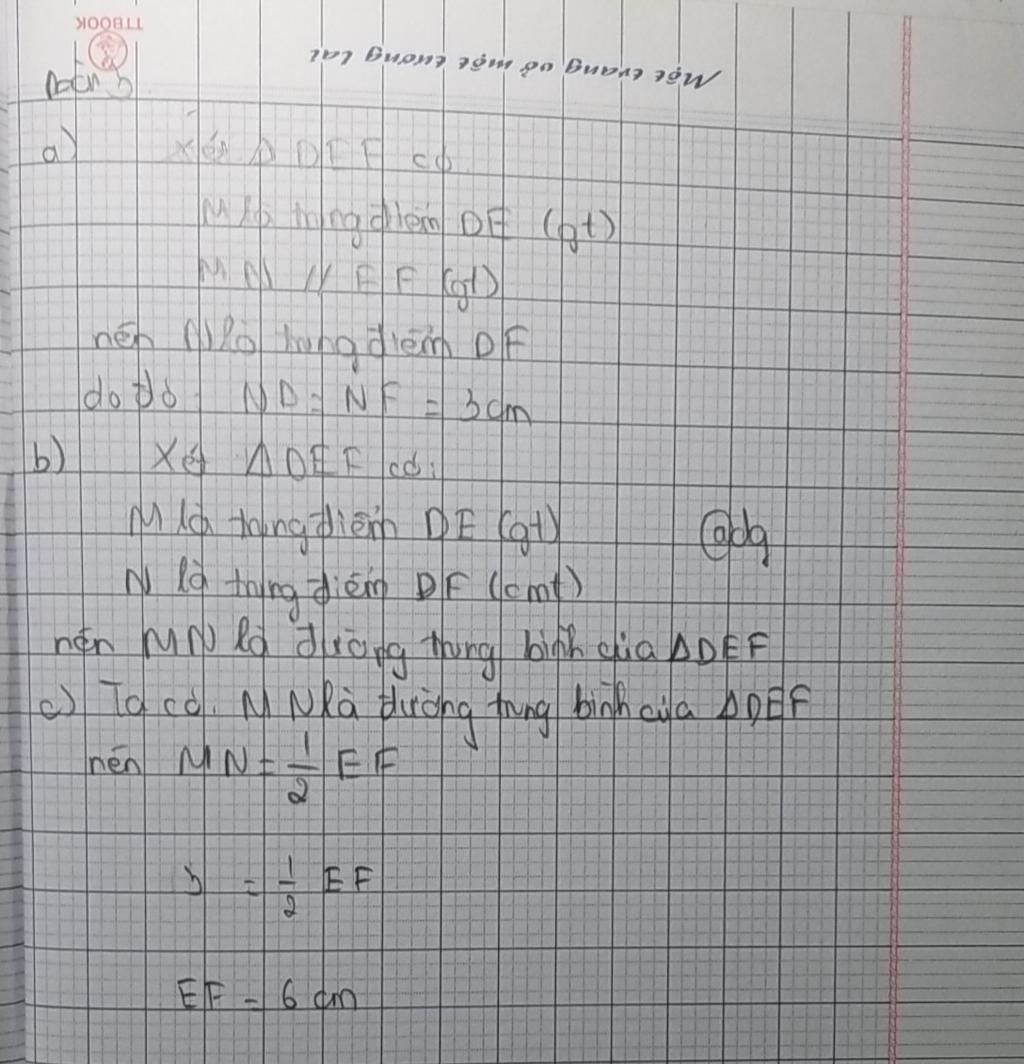 TTBOOK
Một trang vở một tương lai
Bài 3
a) Xét Δ DEF có
M là trung điểm DE (gt)
MN // EF (gt)
nên N là trung điểm DF
do đó ND = NF = 3cm
b) Xét Δ DEF có:
M là trung điểm DE (gt)
@dg
N là trung điểm DF (cmt)
nên MN là đường trung bình của ΔDEF
c) Ta có. MN là đường trung bình của ΔDEF
nên MN = 1/2 EF
3 = 1/2 EF
EF = 6 cm